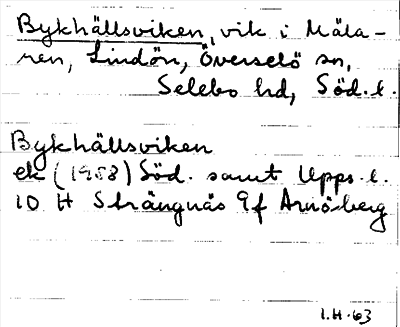 Bykhällsviken, vik i Mäla-
ren, Lindön, Överselö sn,
Selebo hd, Söd. l.
Bykhällsviken
ek (1958) Söd. samt Upps. l.
10 H Strängnäs 9f Arnöberg
I.H. 63